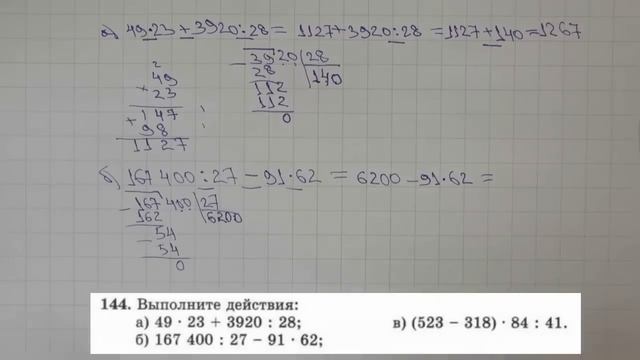 а) 49·23+3920:28= 1127+3920:28=1127+140=1267
2
49
+ 23
147
+ 98
1127
- 3920 28
28 140
112
112
0
б) 167 400:27-91·62= 6200-91·62=
- 167 400 27
162 6200
- 54
54
0
144. Выполните действия:
а) 49 · 23 + 3920 : 28; в) (523 − 318) · 84 : 41.
б) 167 400 : 27 − 91 · 62;